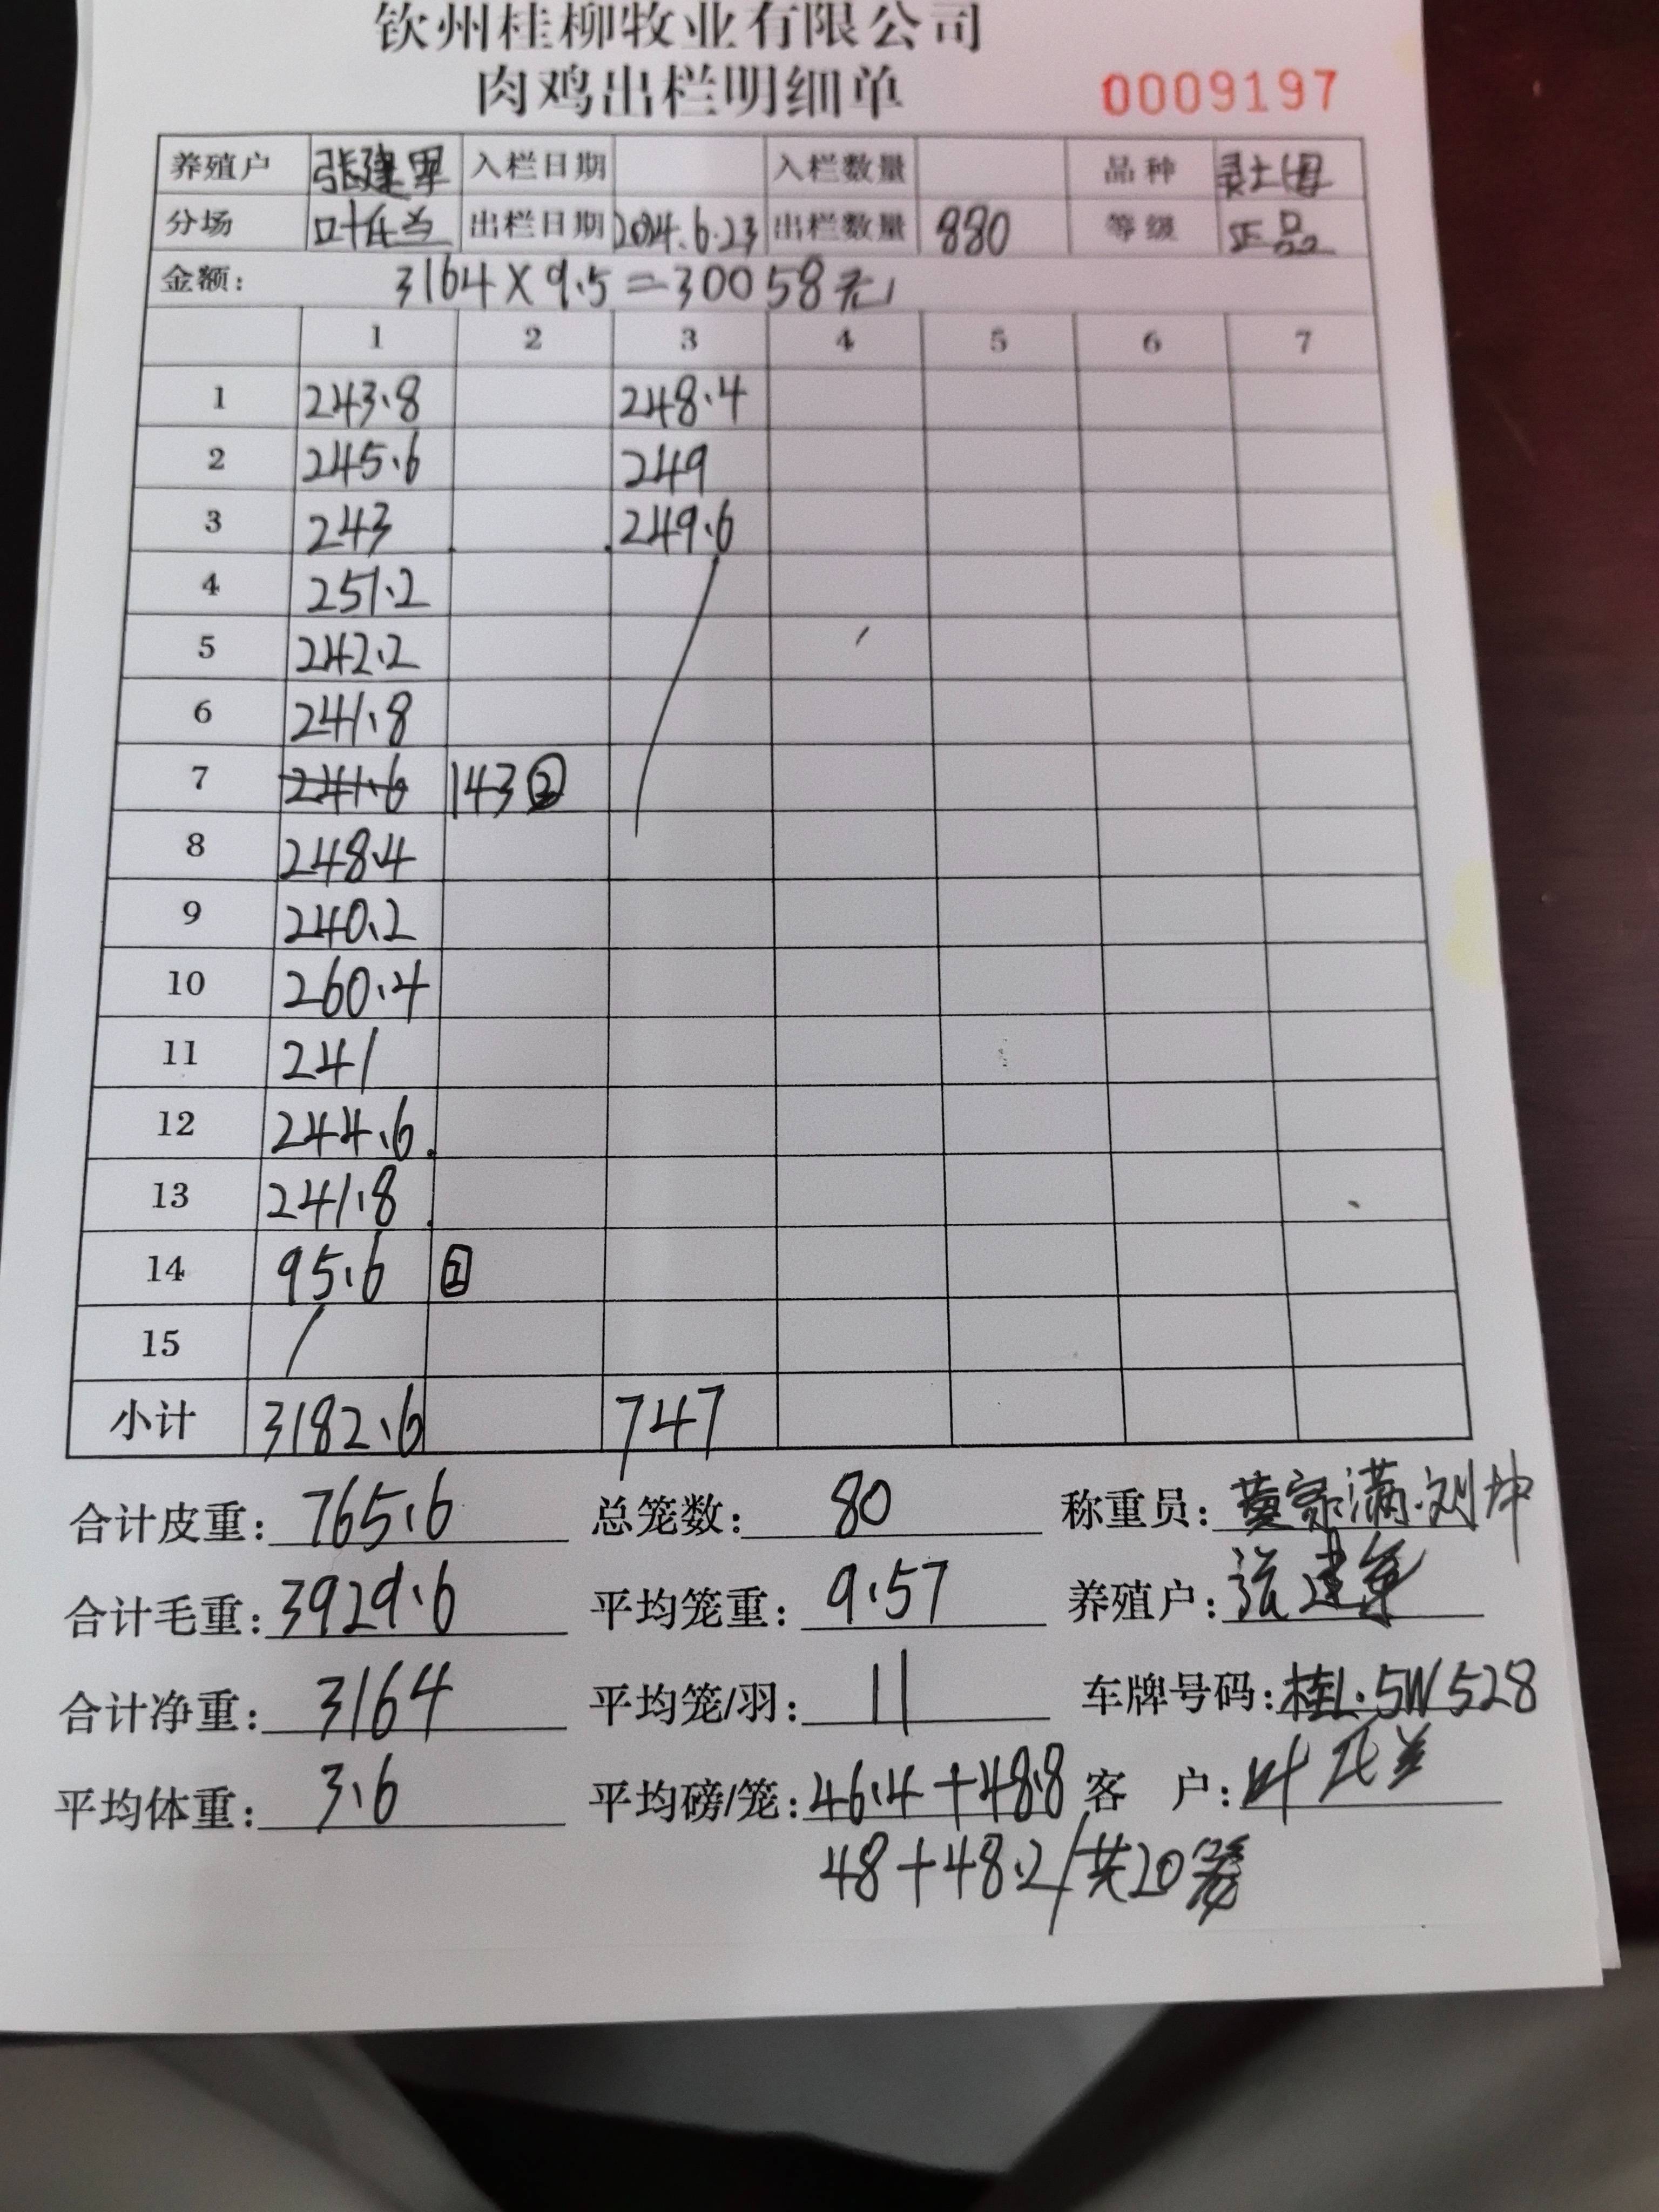 钦州桂柳牧业有限公司
肉鸡出栏明细单 0009197
养殖户 张建军 入栏日期 入栏数量 品种 灵土母
分场 出栏日期 2024.6.23 出栏数量 880 等级 正品
金额： 3164×9.5=30058元
1 2 3 4 5 6 7
1 243.8 248.4
2 245.6 249
3 243 249.6
4 251.2
5 242.2
6 241.8
7 241.6 143③
8 248.4
9 240.2
10 260.4
11 241
12 244.6
13 241.8
14 95.6 2
15
小计 3182.6 747
合计皮重：765.6 总笼数：80 称重员：黄家满.刘坤
合计毛重：3929.6 平均笼重：9.57 养殖户：张建军
合计净重：3164 平均笼/羽：11 车牌号码：桂L.5W528
平均体重：3.6 平均磅/笼：46.4+48.8 客 户：叶
48+48.2/共20